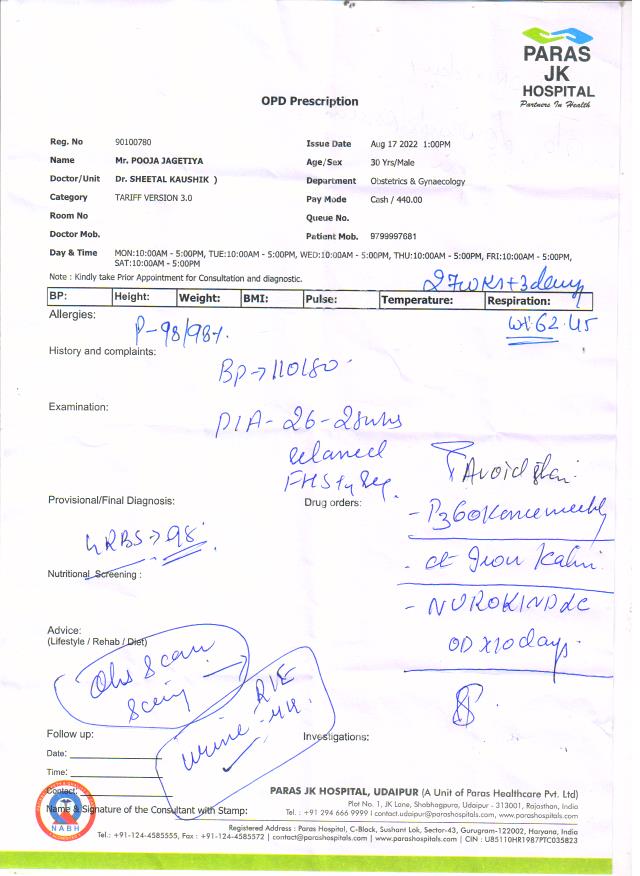 PARAS
JK
HOSPITAL
Partners In Health
OPD Prescription
Reg. No 90100780 Issue Date Aug 17 2022 1:00PM
Name Mr. POOJA JAGETIYA Age/Sex 30 Yrs/Male
Doctor/Unit Dr. SHEETAL KAUSHIK ) Department Obstetrics & Gynaecology
Category TARIFF VERSION 3.0 Pay Mode Cash / 440.00
Room No Queue No.
Doctor Mob. Patient Mob. 9799997681
Day & Time MON:10:00AM - 5:00PM, TUE:10:00AM - 5:00PM, WED:10:00AM - 5:00PM, THU:10:00AM - 5:00PM, FRI:10:00AM - 5:00PM,
SAT:10:00AM - 5:00PM
Note : Kindly take Prior Appointment for Consultation and diagnostic.
27wks+3days
BP: Height: Weight: BMI: Pulse: Temperature: Respiration:
Allergies:
P-98/98%. wt.62.45
History and complaints:
BP→110/80
Examination:
P/A- 26-28wks
relaxed
FHS+ Reg.
Avoid
Provisional/Final Diagnosis: Drug orders:
- P360K once weekly
RBS→98
- ct Iron
Nutritional Screening :
- NUROKIND LC
OD x10 days.
Advice:
(Lifestyle / Rehab / Diet)
Obs Scan
Urine R/E
Follow up: Investigations:
Date:
Time:
Contact:
Name & Signature of the Consultant with Stamp:
NABH
PARAS JK HOSPITAL, UDAIPUR (A Unit of Paras Healthcare Pvt. Ltd)
Plot No. 1, JK Lane, Shobhagpura, Udaipur - 313001, Rajasthan, India
Tel. : +91 294 666 9999 | contact.udaipur@parashospitals.com | www.parashospitals.com
Registered Address : Paras Hospital, C-Block, Sushant Lok, Sector-43, Gurugram-122002, Haryana, India
Tel.: +91-124-4585555, Fax : +91-124-4585572 | contact@parashospitals.com | www.parashospitals.com | CIN : U85110HR1987PTC035823